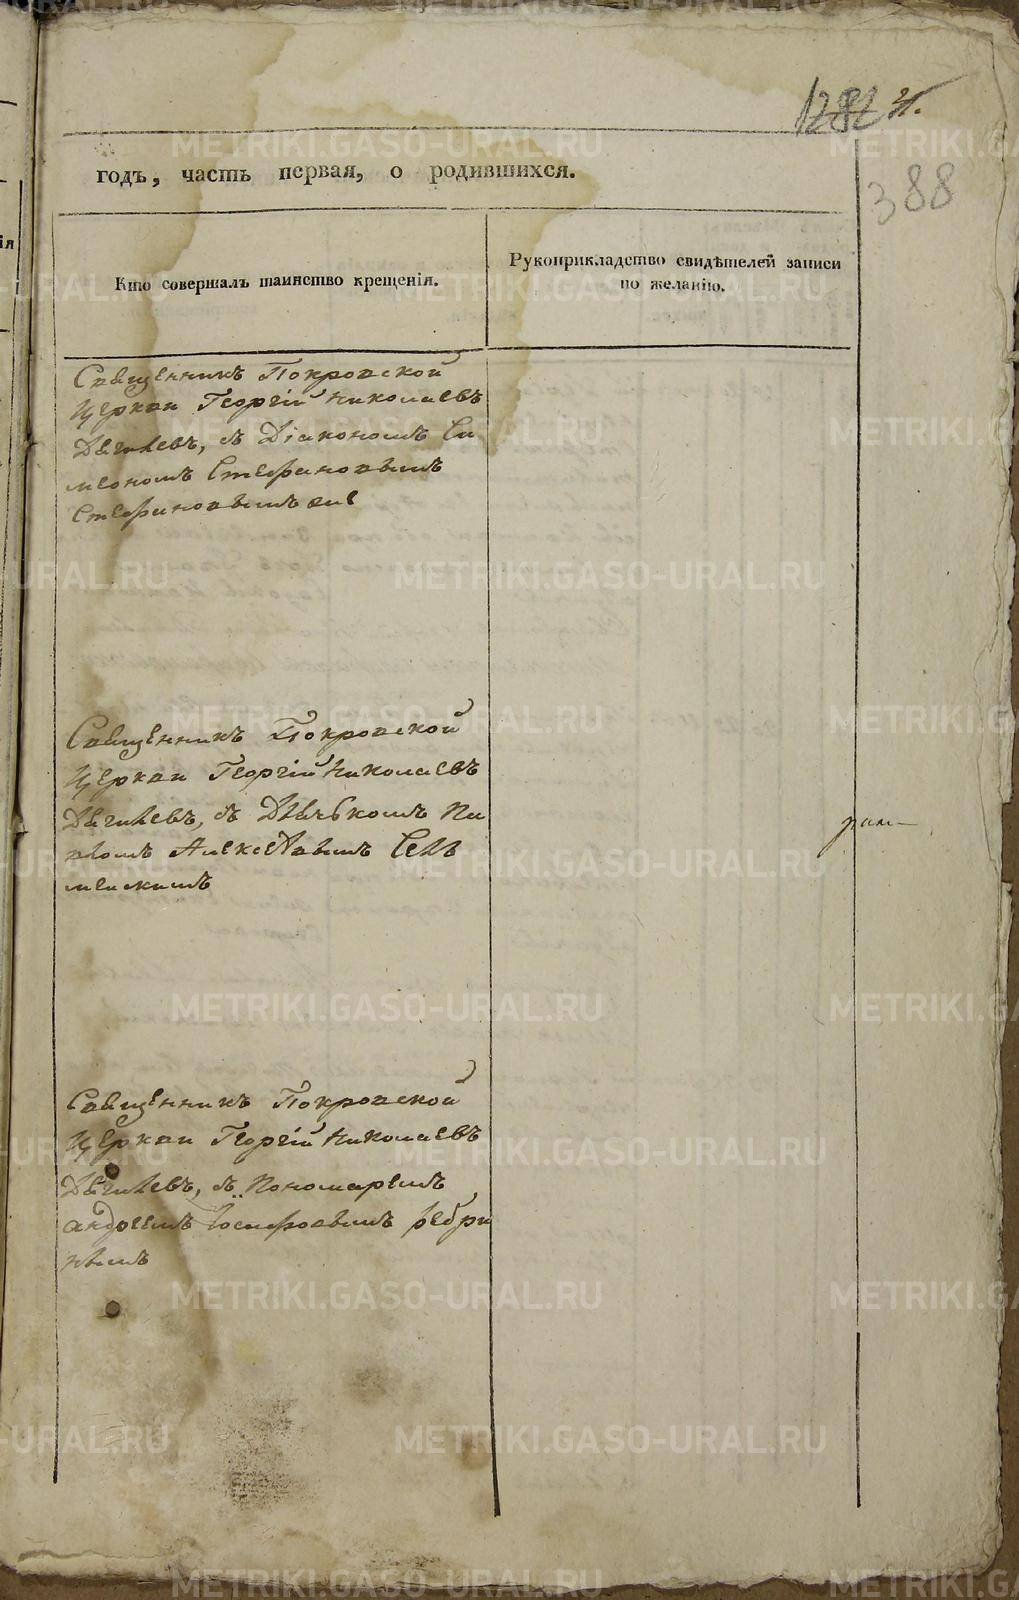 1282
388
годъ, часть первая, о родившихся.
Кто совершалъ таинство крещенія.
Рукоприкладство свидѣтелей записи
по желанію.
Священникъ Покровской
Церкви Георгій Николаевъ
Дягилевъ, съ Діакономъ Си
меономъ Стефановымъ
Стефановымъ
Священникъ Покровской
Церкви Георгій Николаевъ
Дягилевъ, съ Дьячкомъ Па
вломъ Алексѣевымъ
Священникъ Покровской
Церкви Георгій Николаевъ
Дягилевъ, съ Пономаремъ
Андреемъ Іосифовымъ Ребри
нымъ
METRIKI.GASO-URAL.RU